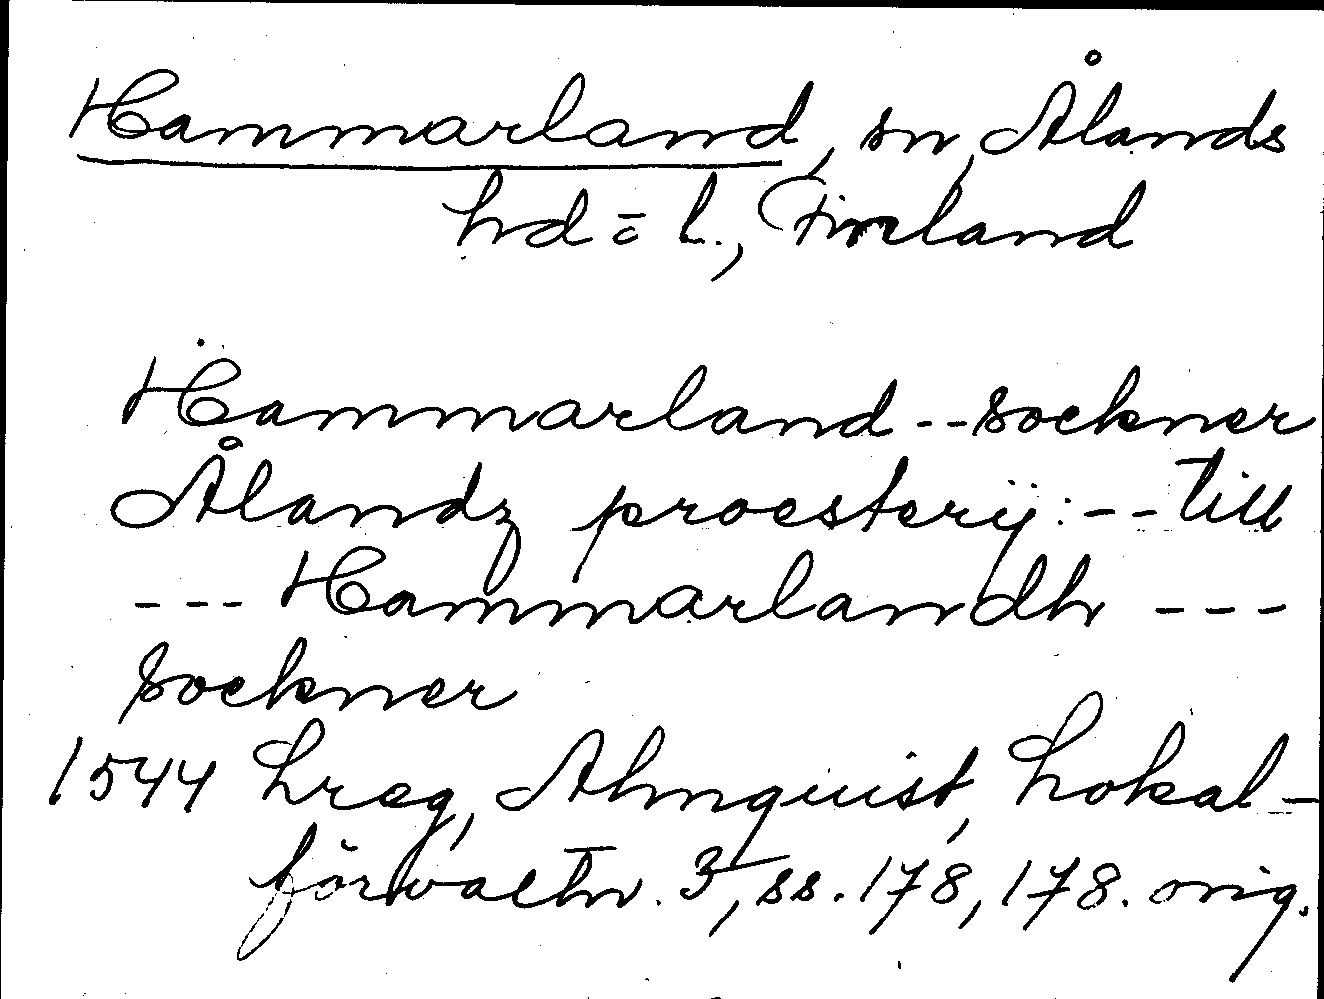 Hammarland, sn, Ålands
hd o l., Finland
Hammarland -- sockner
Ålandz proesterij: -- till
--- Hammarlandh ---
sockner
1544 Lreg, Almquist, Lokal-
förvaltn. 3, ss. 178, 178. orig.